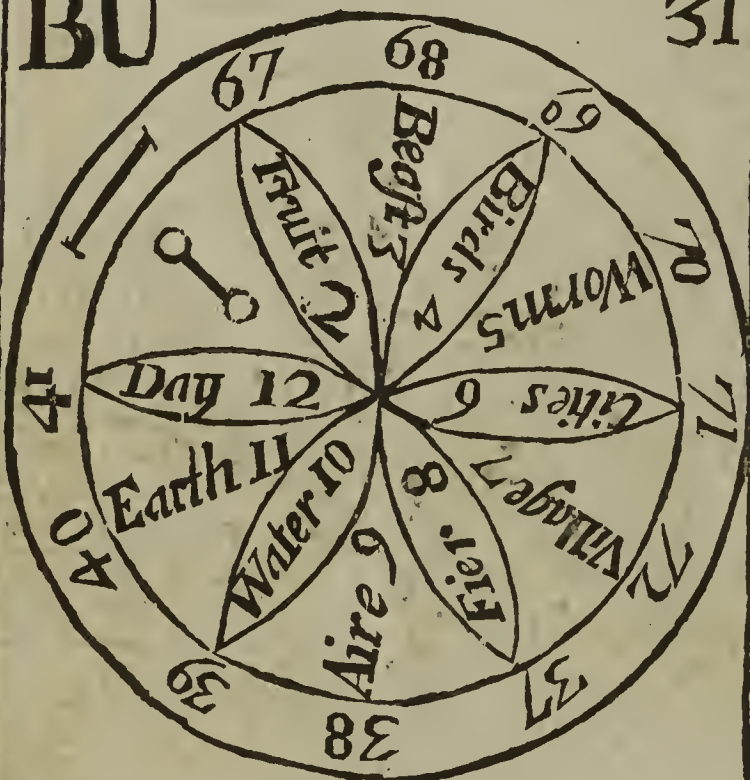 BU
31
67
68
69
70
71
72
37
38
39
40
41
Fruit 2
Beast 3
Birds 4
Worm 5
Cities 6
Village 7
Fier 8
Aire 9
Water 10
Earth 11
Day 12